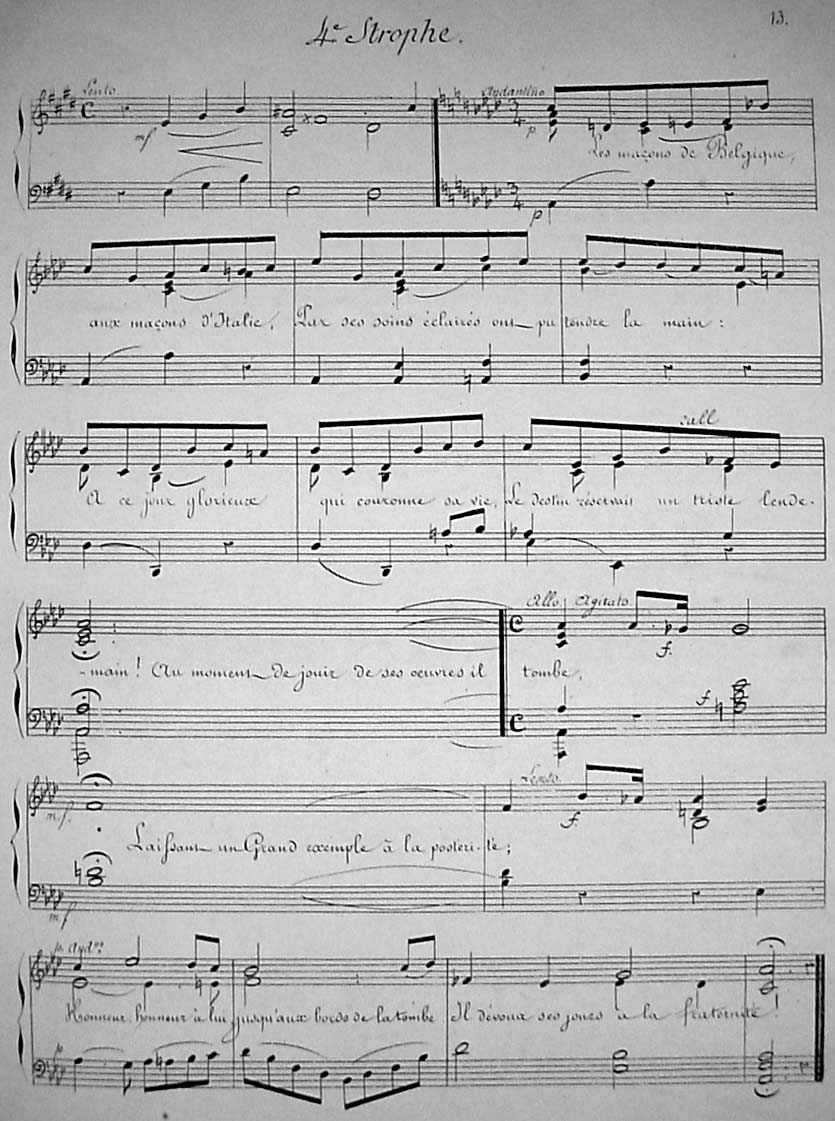 13.
4e Strophe.
Lento
Andantino
mf
p
Les maçons de Belgique,
p
aux maçons d'Italie, Par ses soins éclairés ont pu tendre la main :
rall
A ce jour glorieux qui couronne sa vie, Le destin réservait un triste lende-
Allo Agitato
-main ! Au moment de jouir de ses oeuvres il tombe,
f.
f.
Lento
mf.
f.
Laissant un Grand exemple à la postéri-té ;
mf
Andno
Honneur, honneur à lui jusqu'aux bords de la tombe Il dévoua ses jours à la fraternité !